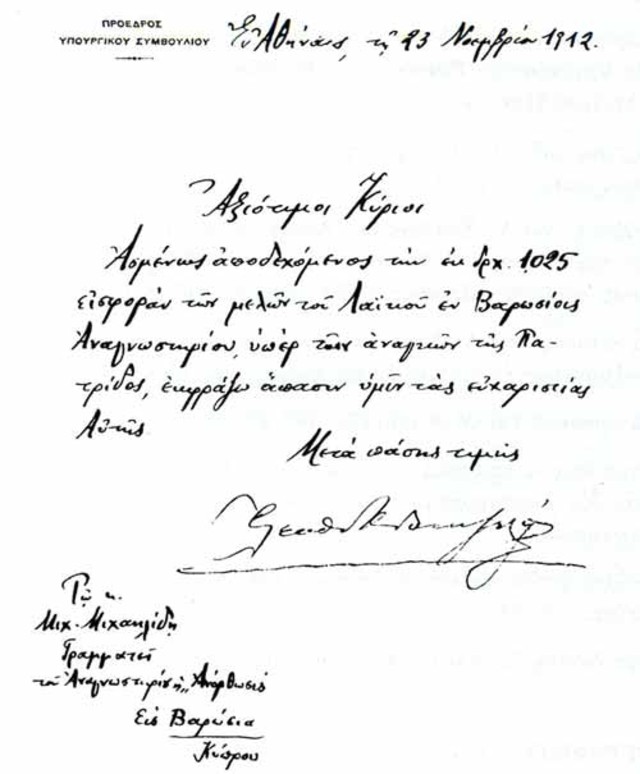 ΠΡΟΕΔΡΟΣ
ΥΠΟΥΡΓΙΚΟΥ ΣΥΜΒΟΥΛΙΟΥ
Ἐν Ἀθήναις, τῇ 23 Νοεμβρίου 1912.
Ἀξιότιμοι Κύριοι
Ἀσμένως ἀποδεχόμενος τὴν ἐκ δρχ. 1,025
εἰσφορὰν τῶν μελῶν τοῦ Λαϊκοῦ ἐν Βαρωσίοις
Ἀναγνωστηρίου, ὑπὲρ τῶν ἀναγκῶν τῆς Πα-
τρίδος, ἐκφράζω ἅπασιν ὑμῖν τὰς εὐχαριστίας
Αὐτῆς.
Μετὰ πάσης τιμῆς
Τῷ κ.
Μιχ. Μιχαηλίδῃ
Γραμματεῖ
τοῦ Ἀναγνωστηρίου „Ἀνόρθωσις
Εἰς Βαρώσια
Κύπρου